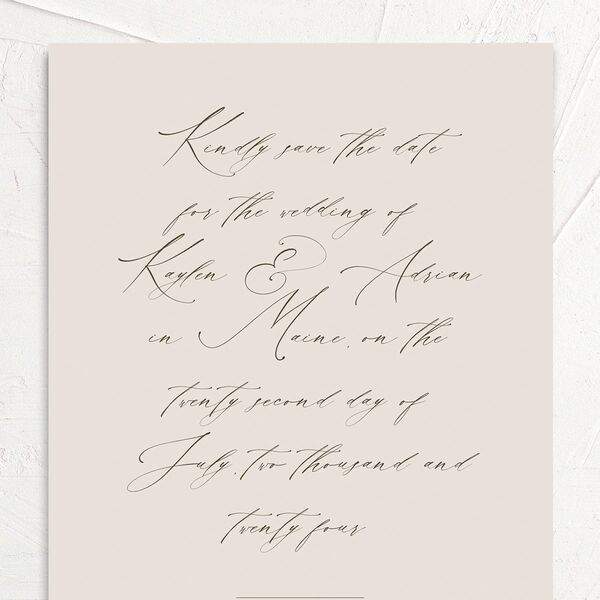 Kindly save the date
for the wedding of
Kaylen & Adrian
in Maine, on the
twenty second day of
July, two thousand and
twenty four